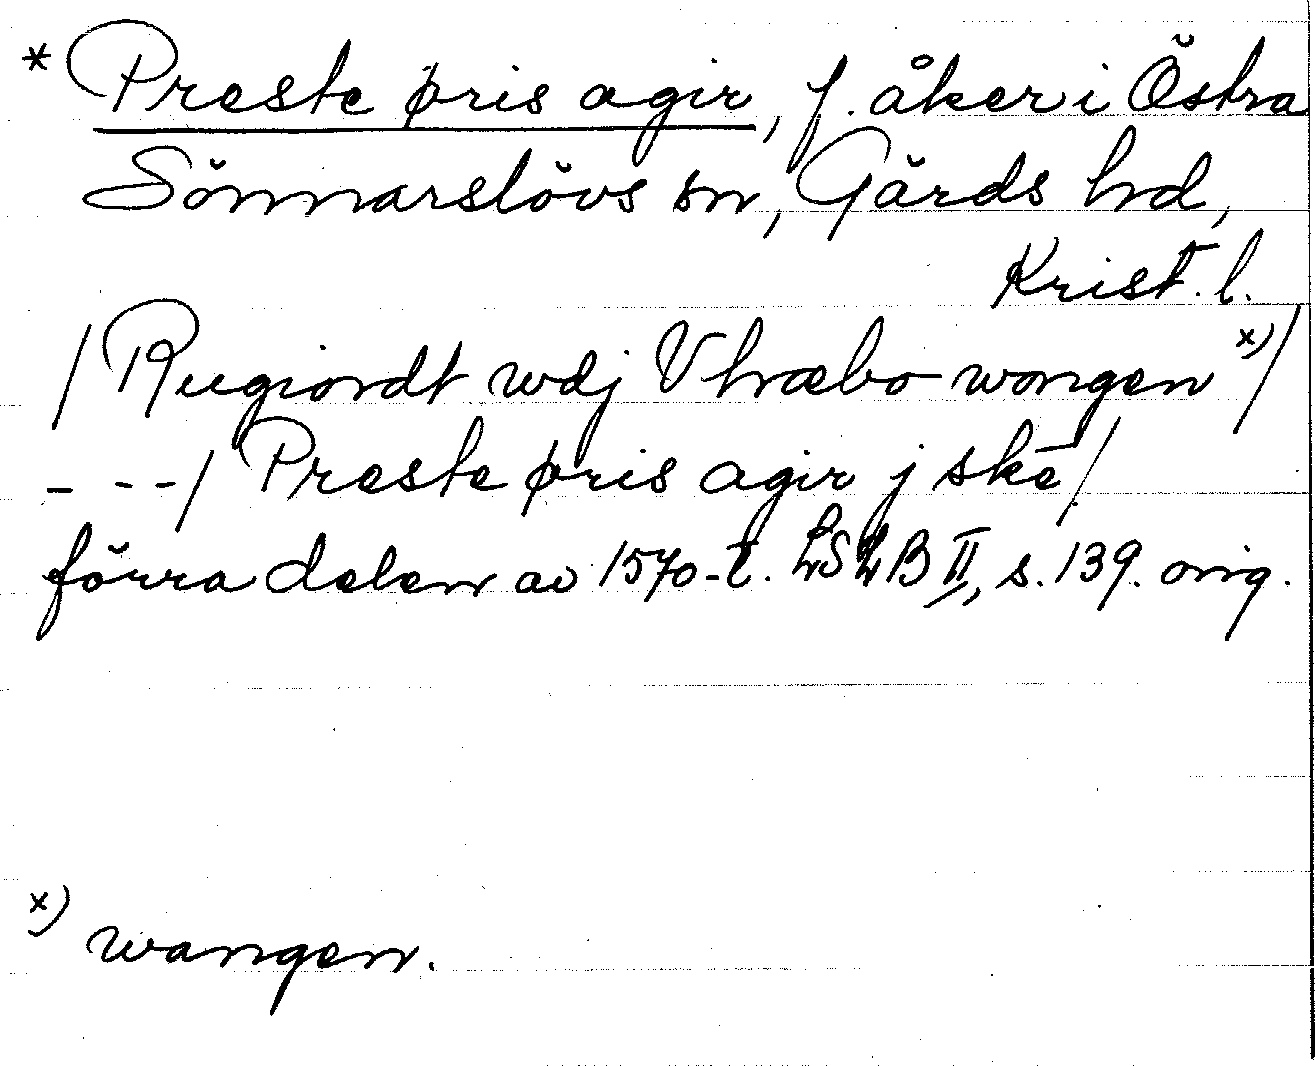 * Preste pris agir, f. åker i Östra
Sönnarslövs sn, Gärds hd,
Krist. l.
/ Rugiordt wdj Vhræbo wongen x) /
- - - / Preste pris agir j skē /
förra delen av 1570-t. LSLB II, s. 139. orig.
x) wangen.